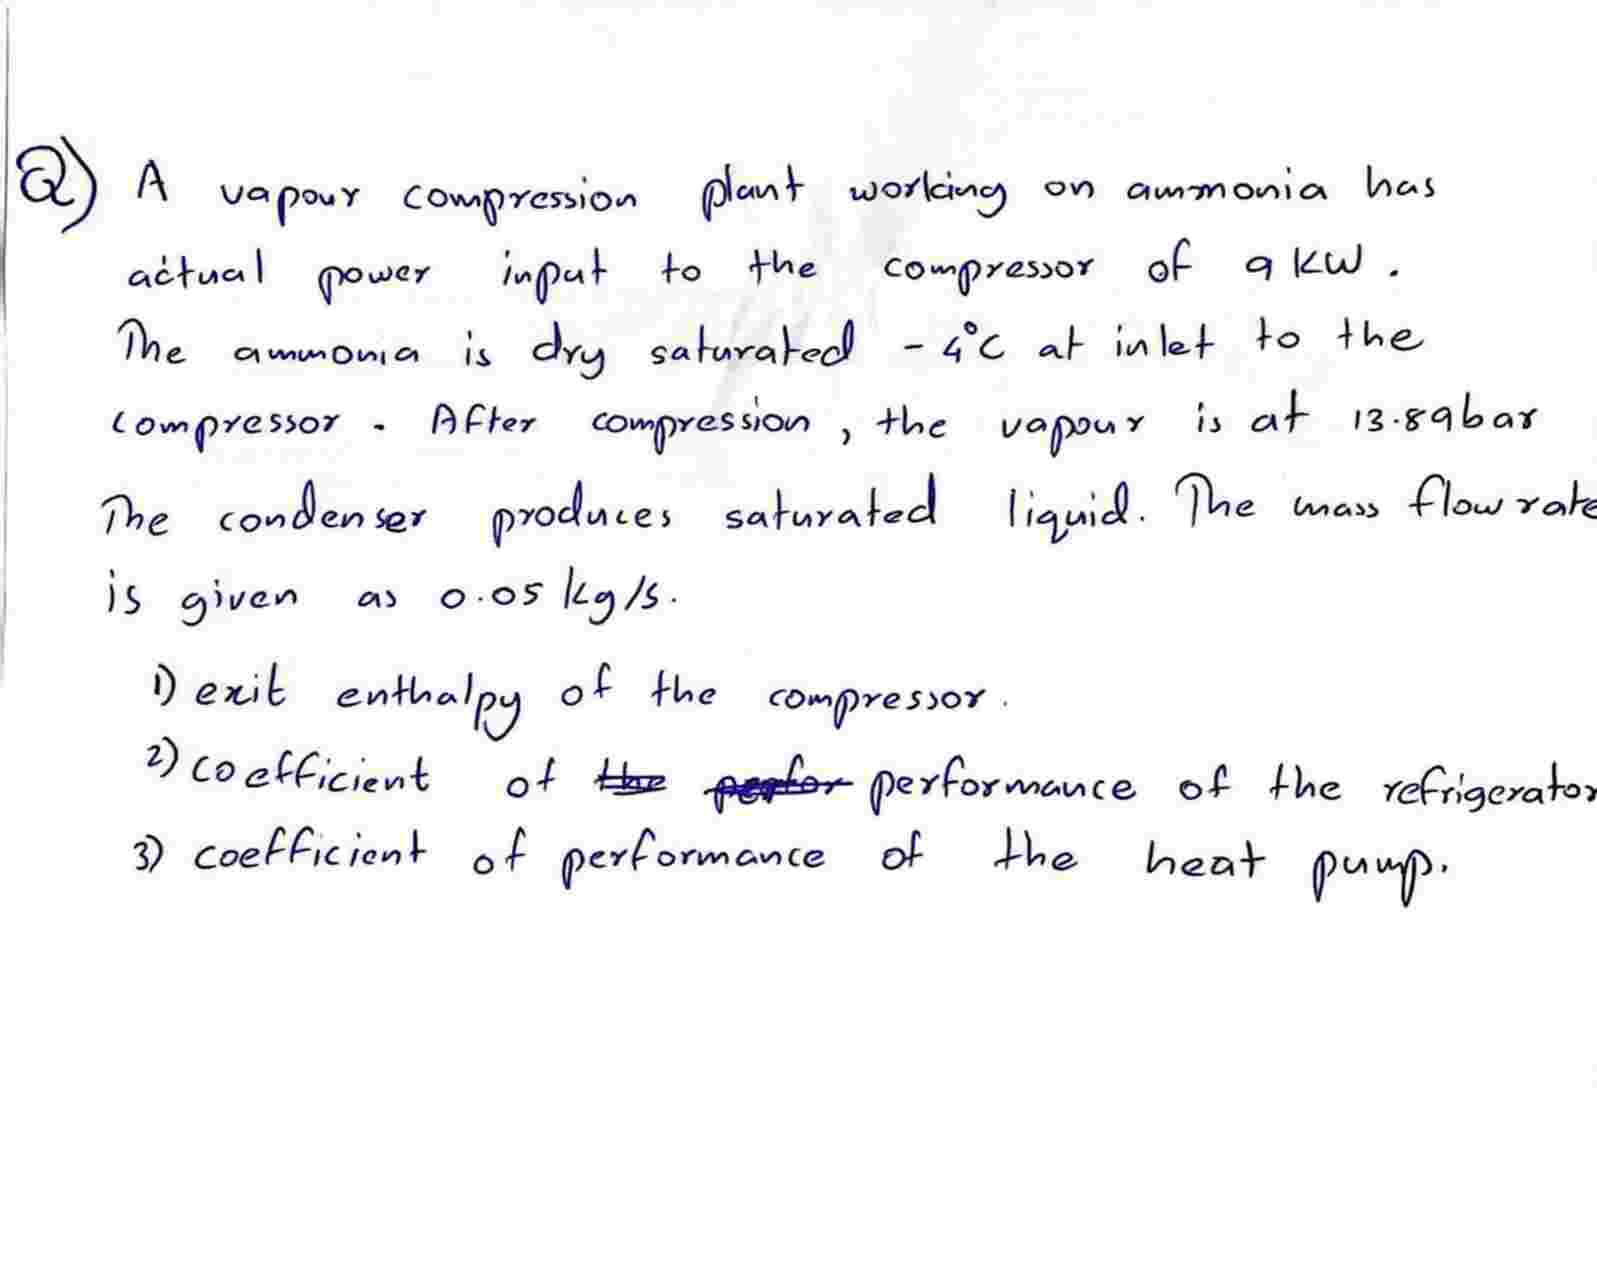 Q) A vapour compression plant working on ammonia has
actual power input to the compressor of 9 kW.
The ammonia is dry saturated -4°C at inlet to the
compressor. After compression, the vapour is at 13.89bar
The condenser produces saturated liquid. The mass flow rate
is given as 0.05 kg/s.
1) exit enthalpy of the compressor.
2) coefficient of the perfor performance of the refrigerator
3) coefficient of performance of the heat pump.